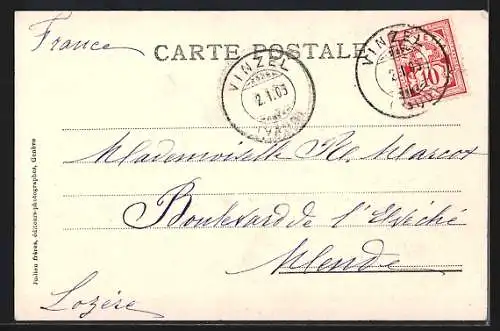 France
CARTE POSTALE
VINZEL
2.I.05
VINZEL
2.I.05
(VAUD)
10
Mademoiselle R. Marcox
Boulevard de l'Evéché
Mende
Lozère
Jullien frères, éditeurs-photographes, Genève